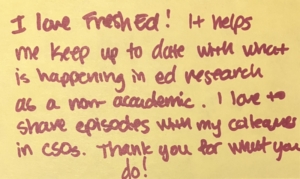 I love FreshEd! It helps
me keep up to date with what
is happening in ed research
as a non academic. I love to
share episodes with my colleagues
in CSOs. Thank you for what you
do!